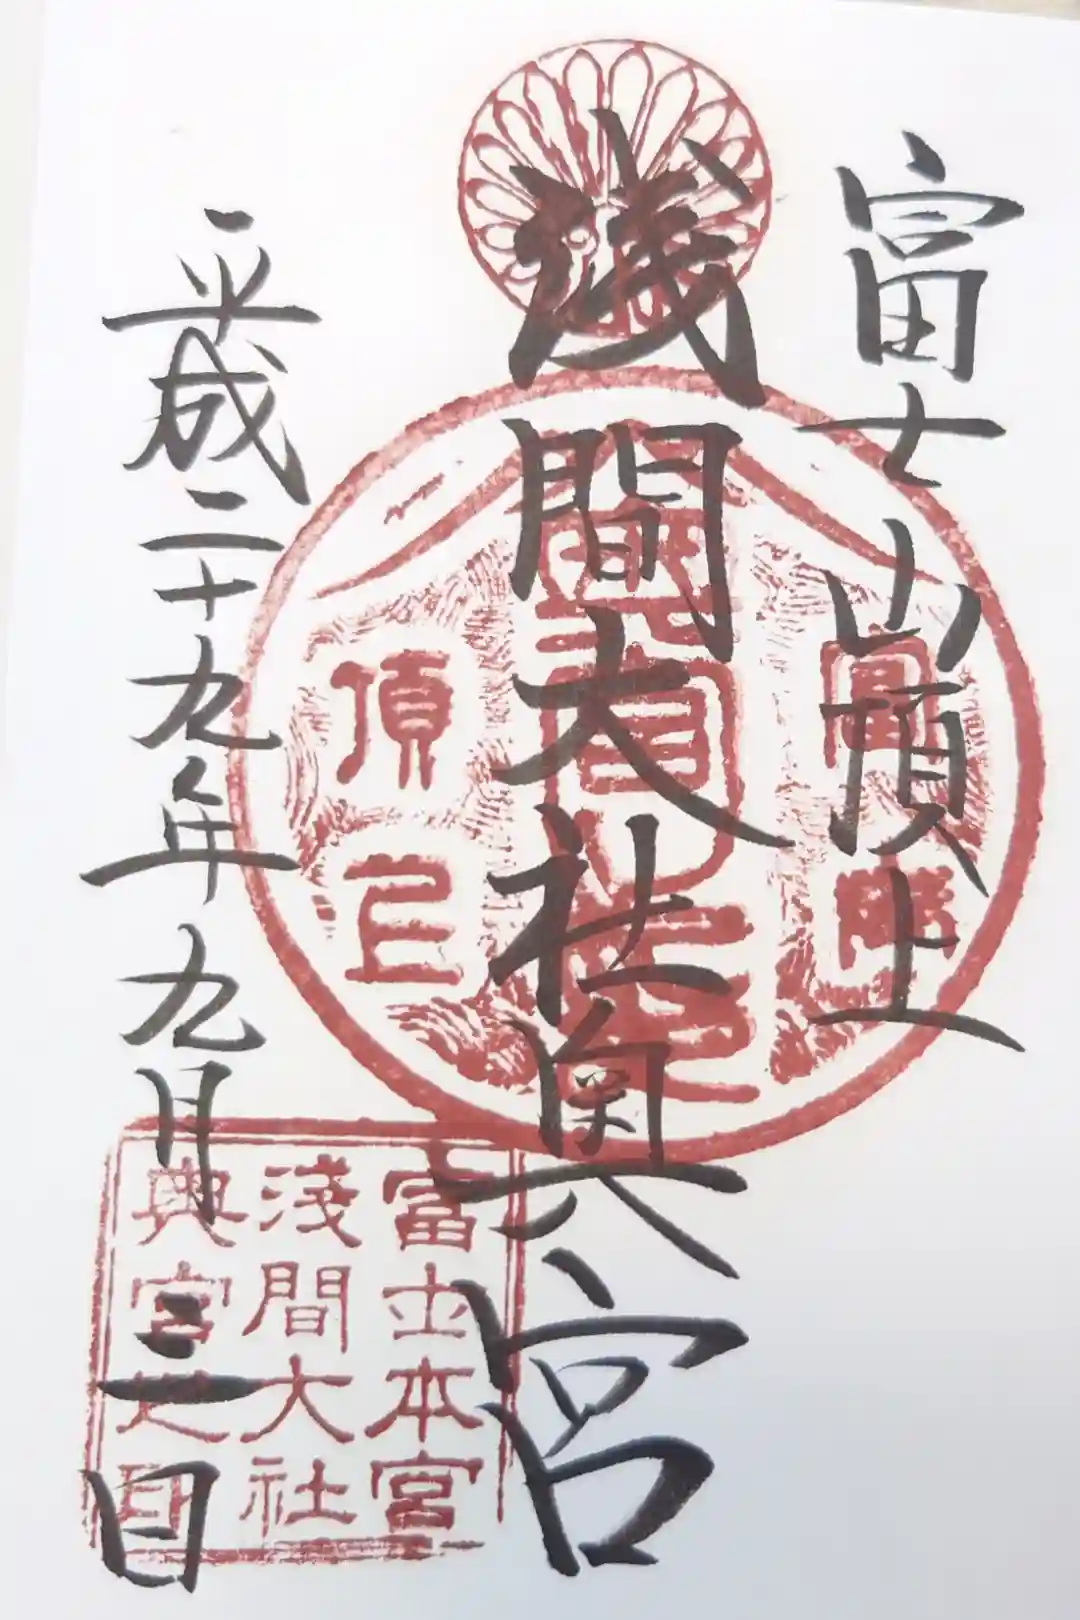 富士山頂上
浅間大社奥宮
平成二十九年九月二日
富士
頂上
富士本宮
淺間大社
奥宮之印